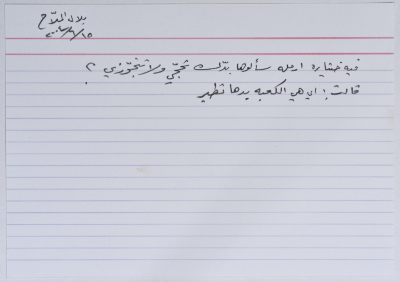 بلال الملاح
فيه ختياره ارمله سألوها بدّك تحجّي ولا تتجوّزي ؟
قالت : اي هي الكعبه بدها تطير